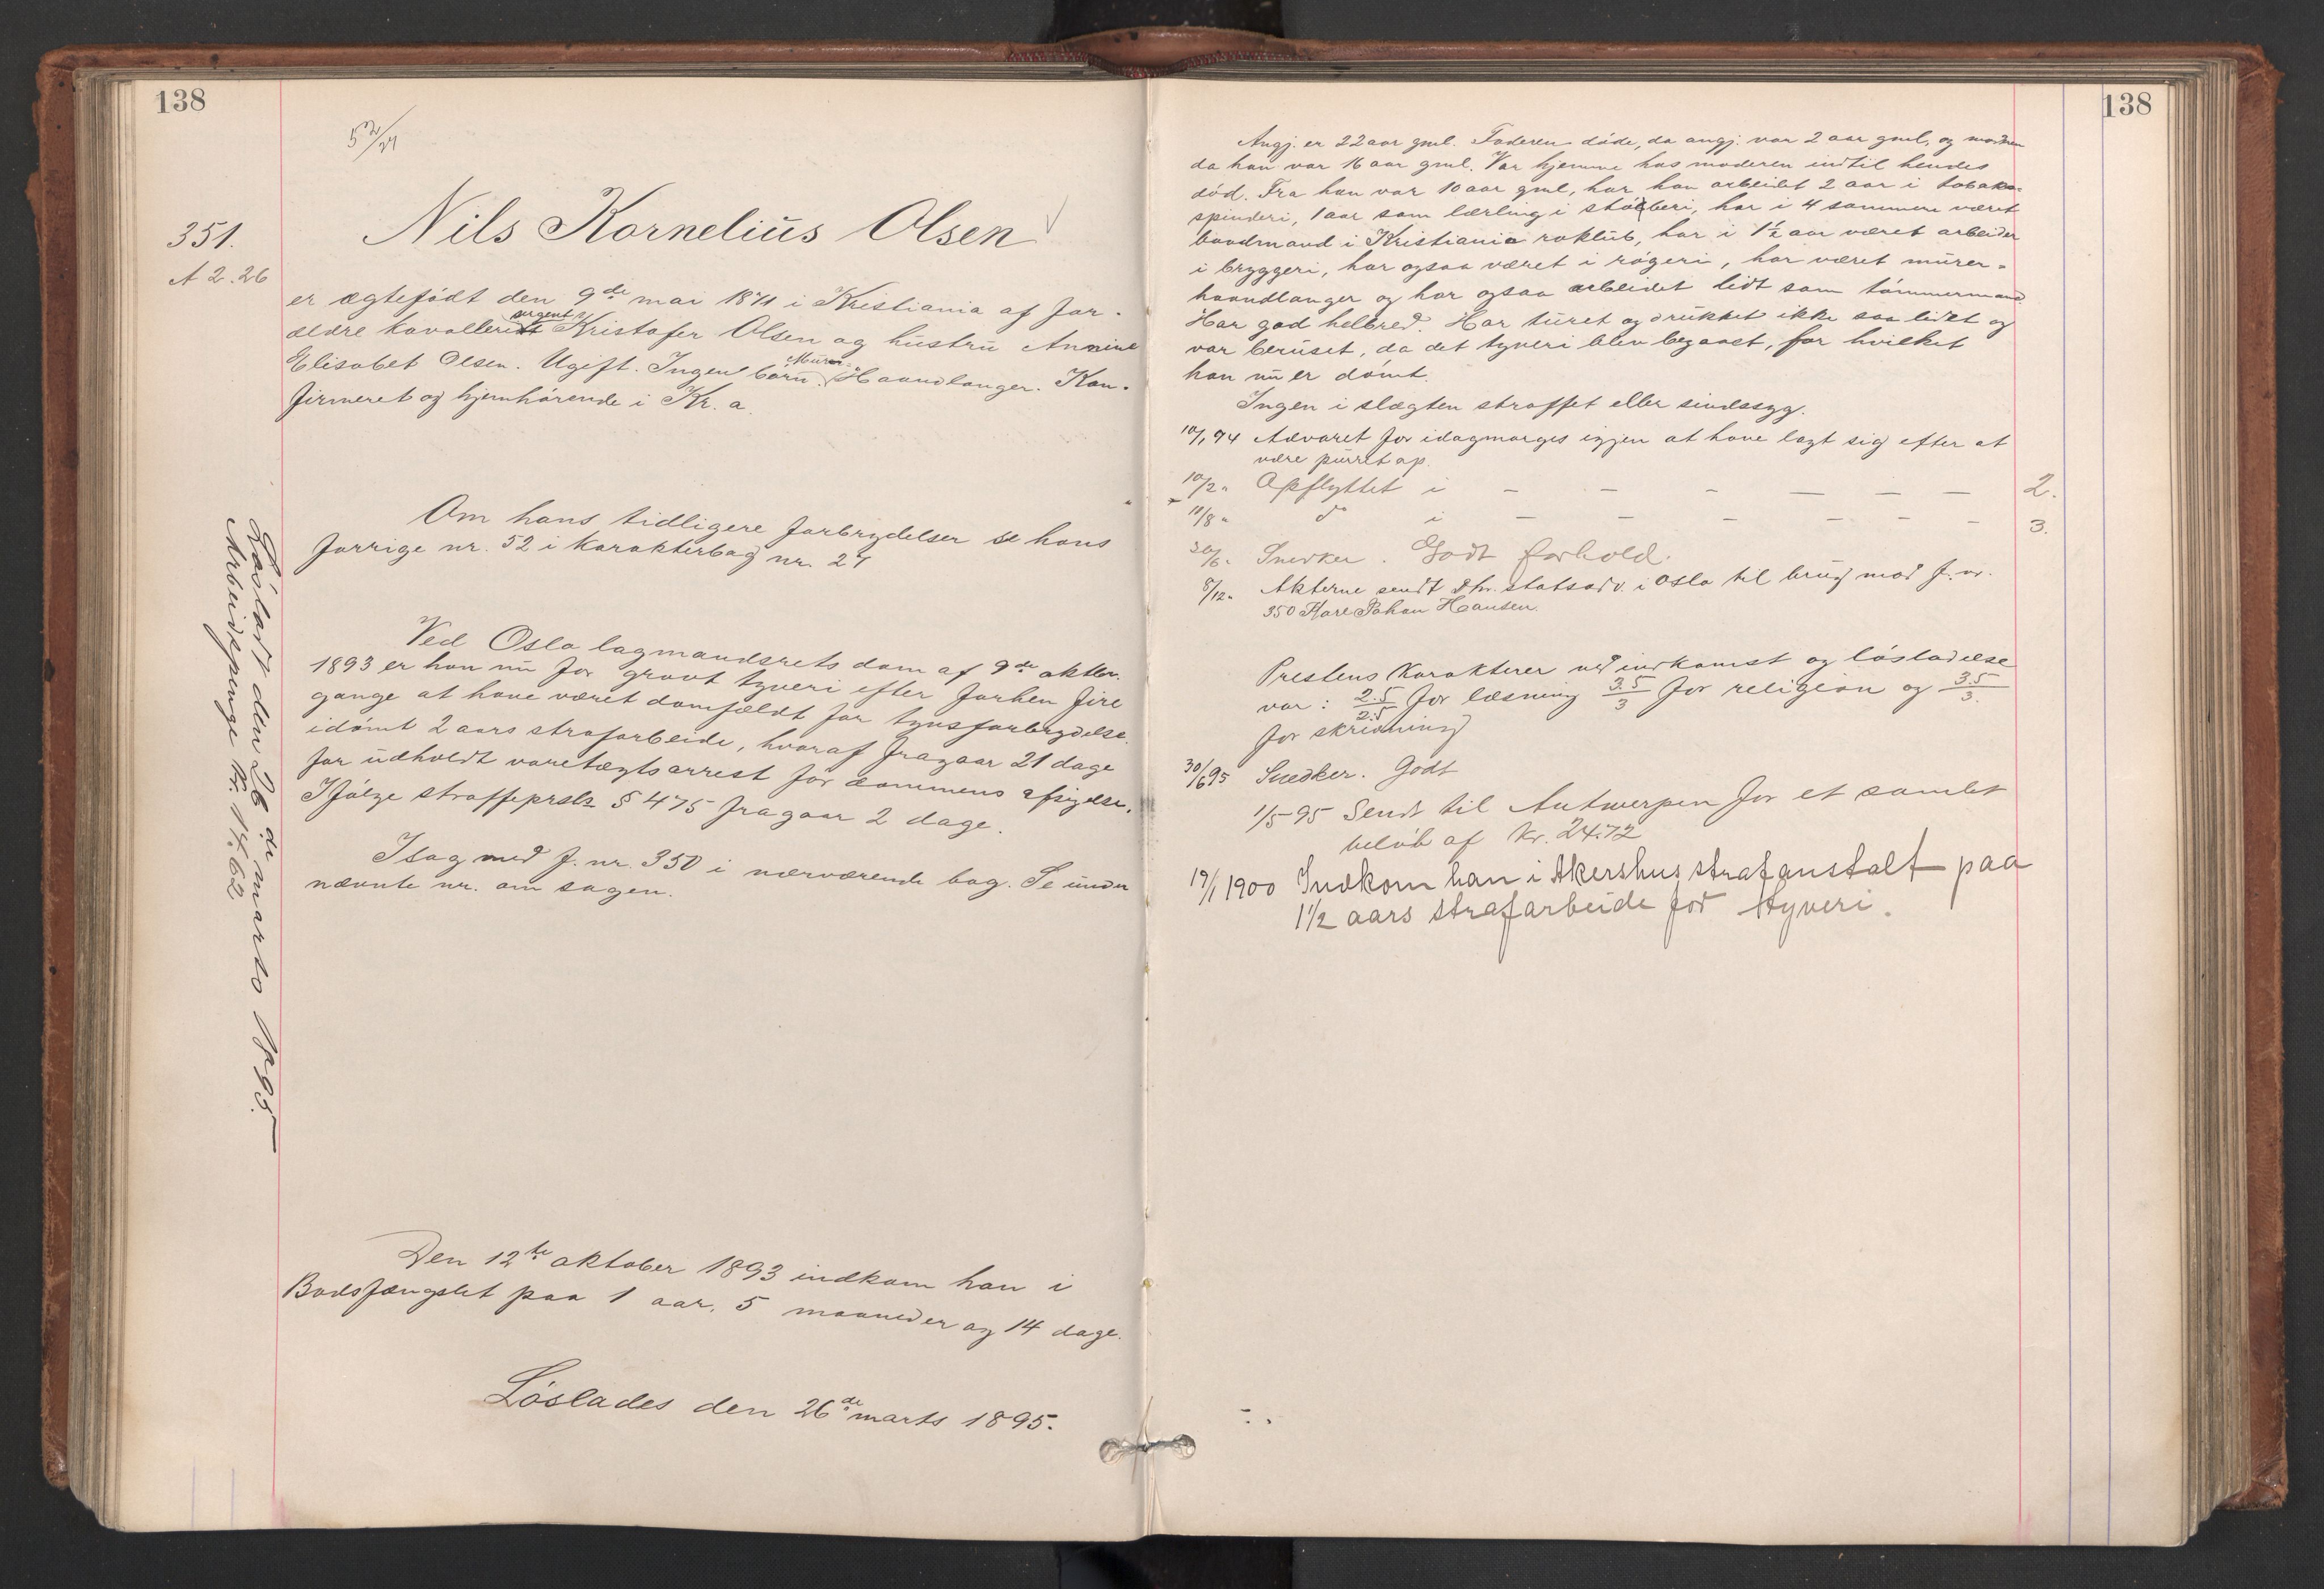 138
52/27
351.
A 2.26
Nils Kornelius Olsen
er ægtefödt den 9de mai 1871 i Kristiania af for-
ældre kavallerist sergent Kristofer Olsen og hustru Annine
Elisabet Olsen. Ugift. Ingen börn. Murer- Haandlanger. Kon-
firmeret og hjemhörende i Kr.a.
Om hans tidligere forbrydelser se hans
forrige nr. 52 i karakterbog nr. 27
Ved Oslo lagmandsrets dom af 9de oktbr.
1893 er han nu for grovt tyveri efter forhen fire
gange at have været domfældt for tyvsforbrydelse
idömt 2 aars strafarbeide, hvoraf fragaar 21 dage
for udholdt varetægtsarrest för dommens afsigelse.
Ifölge straffeprsls § 475 fragaar 2 dage.
I sag med f. nr. 350 i nærværende bog. Se under
nævnte nr. om sagen.
Den 12te oktober 1893 indkom han i
Bodsfængslet paa 1 aar, 5 maaneder og 14 dage.
Löslades den 26de marts 1895.
Lösladt den 26de marts 1895.
Arbeidspenge Kr. 14.62
138
Angj. er 22 aar gml. Faderen döde, da angj. var 2 aar gml, og modren
da han var 16 aar gml. Var hjemme hos moderen indtil hendes
död. Fra han var 10 aar gml, har han arbeidet 2 aar i tobaks-
spinderi, 1 aar som lærling i stöberi, har i 4 sommere været
baadmand i Kristiania roklub, har i 1½ aar været arbeider
i bryggeri, har ogsaa været i rögeri, har været murer-
haandlanger og har ogsaa arbeidet lidt som tömmermand.
Har god helbred. Har turet og drukket ikke saa lidet og
var beruset, da det tyveri blev begaaet, for hvilket
han nu er dömt.
Ingen i slægten straffet eller sindssyg.
10/1 94 Advaret for idagmorges igjen at have lagt sig efter at
være purret op.
10/2 " Opflyttet i — — — — — — 2.
10/8 " do i — — — — — — 3.
30/6 " Snedker. Godt forhold.
8/12 " Akterne sendt Hr. statsadv. i Oslo til brug mod f. nr.
350 Karl Johan Hansen.
Prestens karakterer ved indkomst og lösladelse
var: 2.5/2.5 for læsning 3.5/3 for religion og 3.5/3.
for skrivning
30/6 95 Snedker. Godt
1/5 95 Sendt til Antwerpen for et samlet
belöb af Kr. 24.72
19/1 1900 Indkom han i Akershus strafanstalt paa
1½ aars strafarbeide for tyveri.